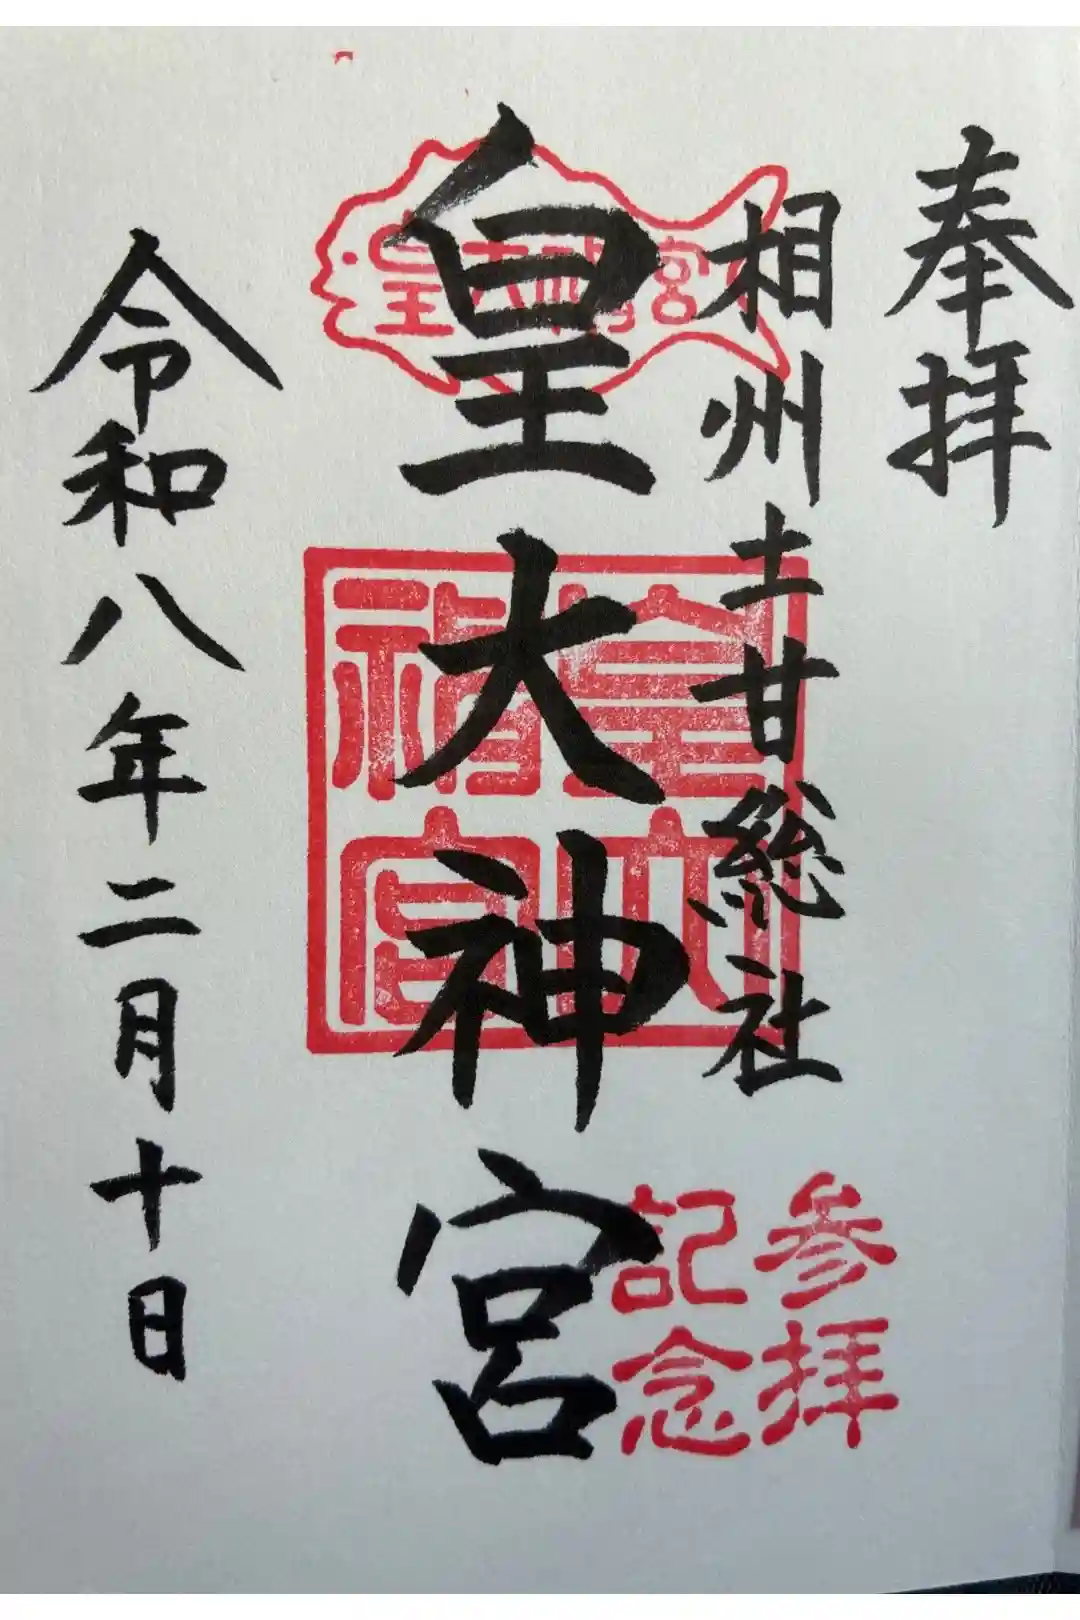 奉拝
相州土甘総社
皇大神宮
皇大神宮
皇大神宮
参拝
記念
令和八年二月十日